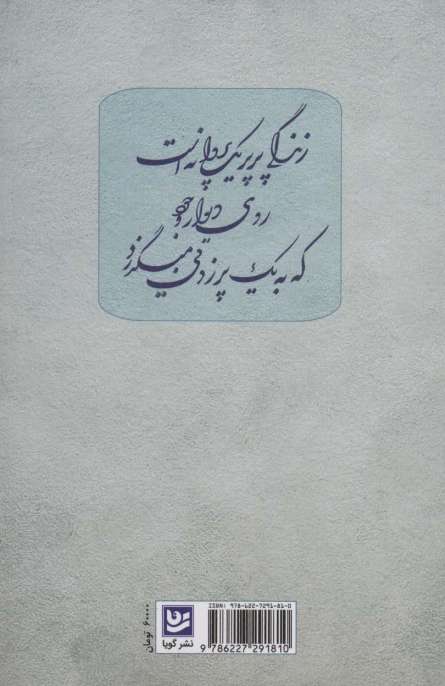 زندگی پرپر یک پروانه است
روی دیوار وجود
که به یک پر زدنی میگذرد
ISBN: 978-622-7291-81-0
9 786227 291810
نشر گویا
۶۰۰۰۰ تومان